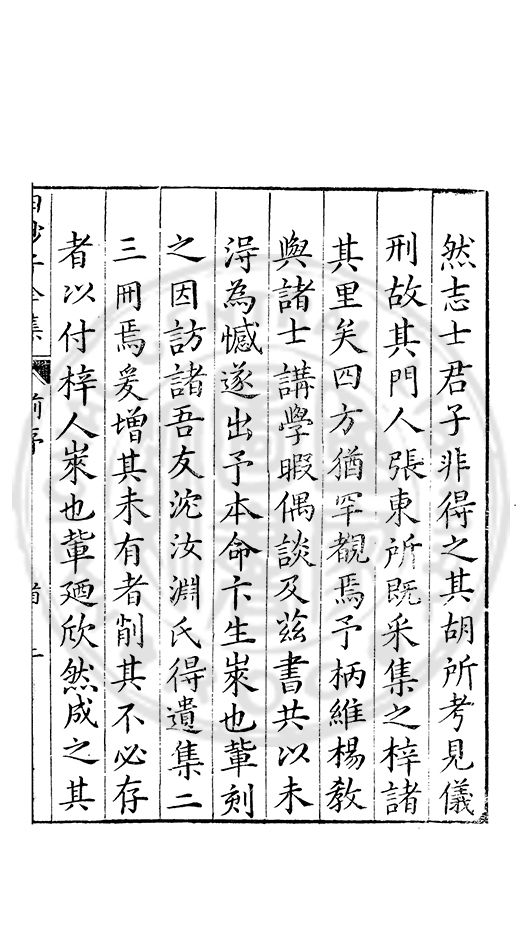 然志士君子非得之其胡所考見儀
刑故其門人張東所既采集之梓諸
其里矣四方猶罕覩焉予柄維楊教
與諸士講學暇偶談及茲書共以未
淂為憾遂出予本命卞生崠也輩刻
之因訪諸吾友沈汝淵氏得遺集二
三冊焉爰增其未有者削其不必存
者以付梓人崠也輩廼欣然成之其
全集 前序